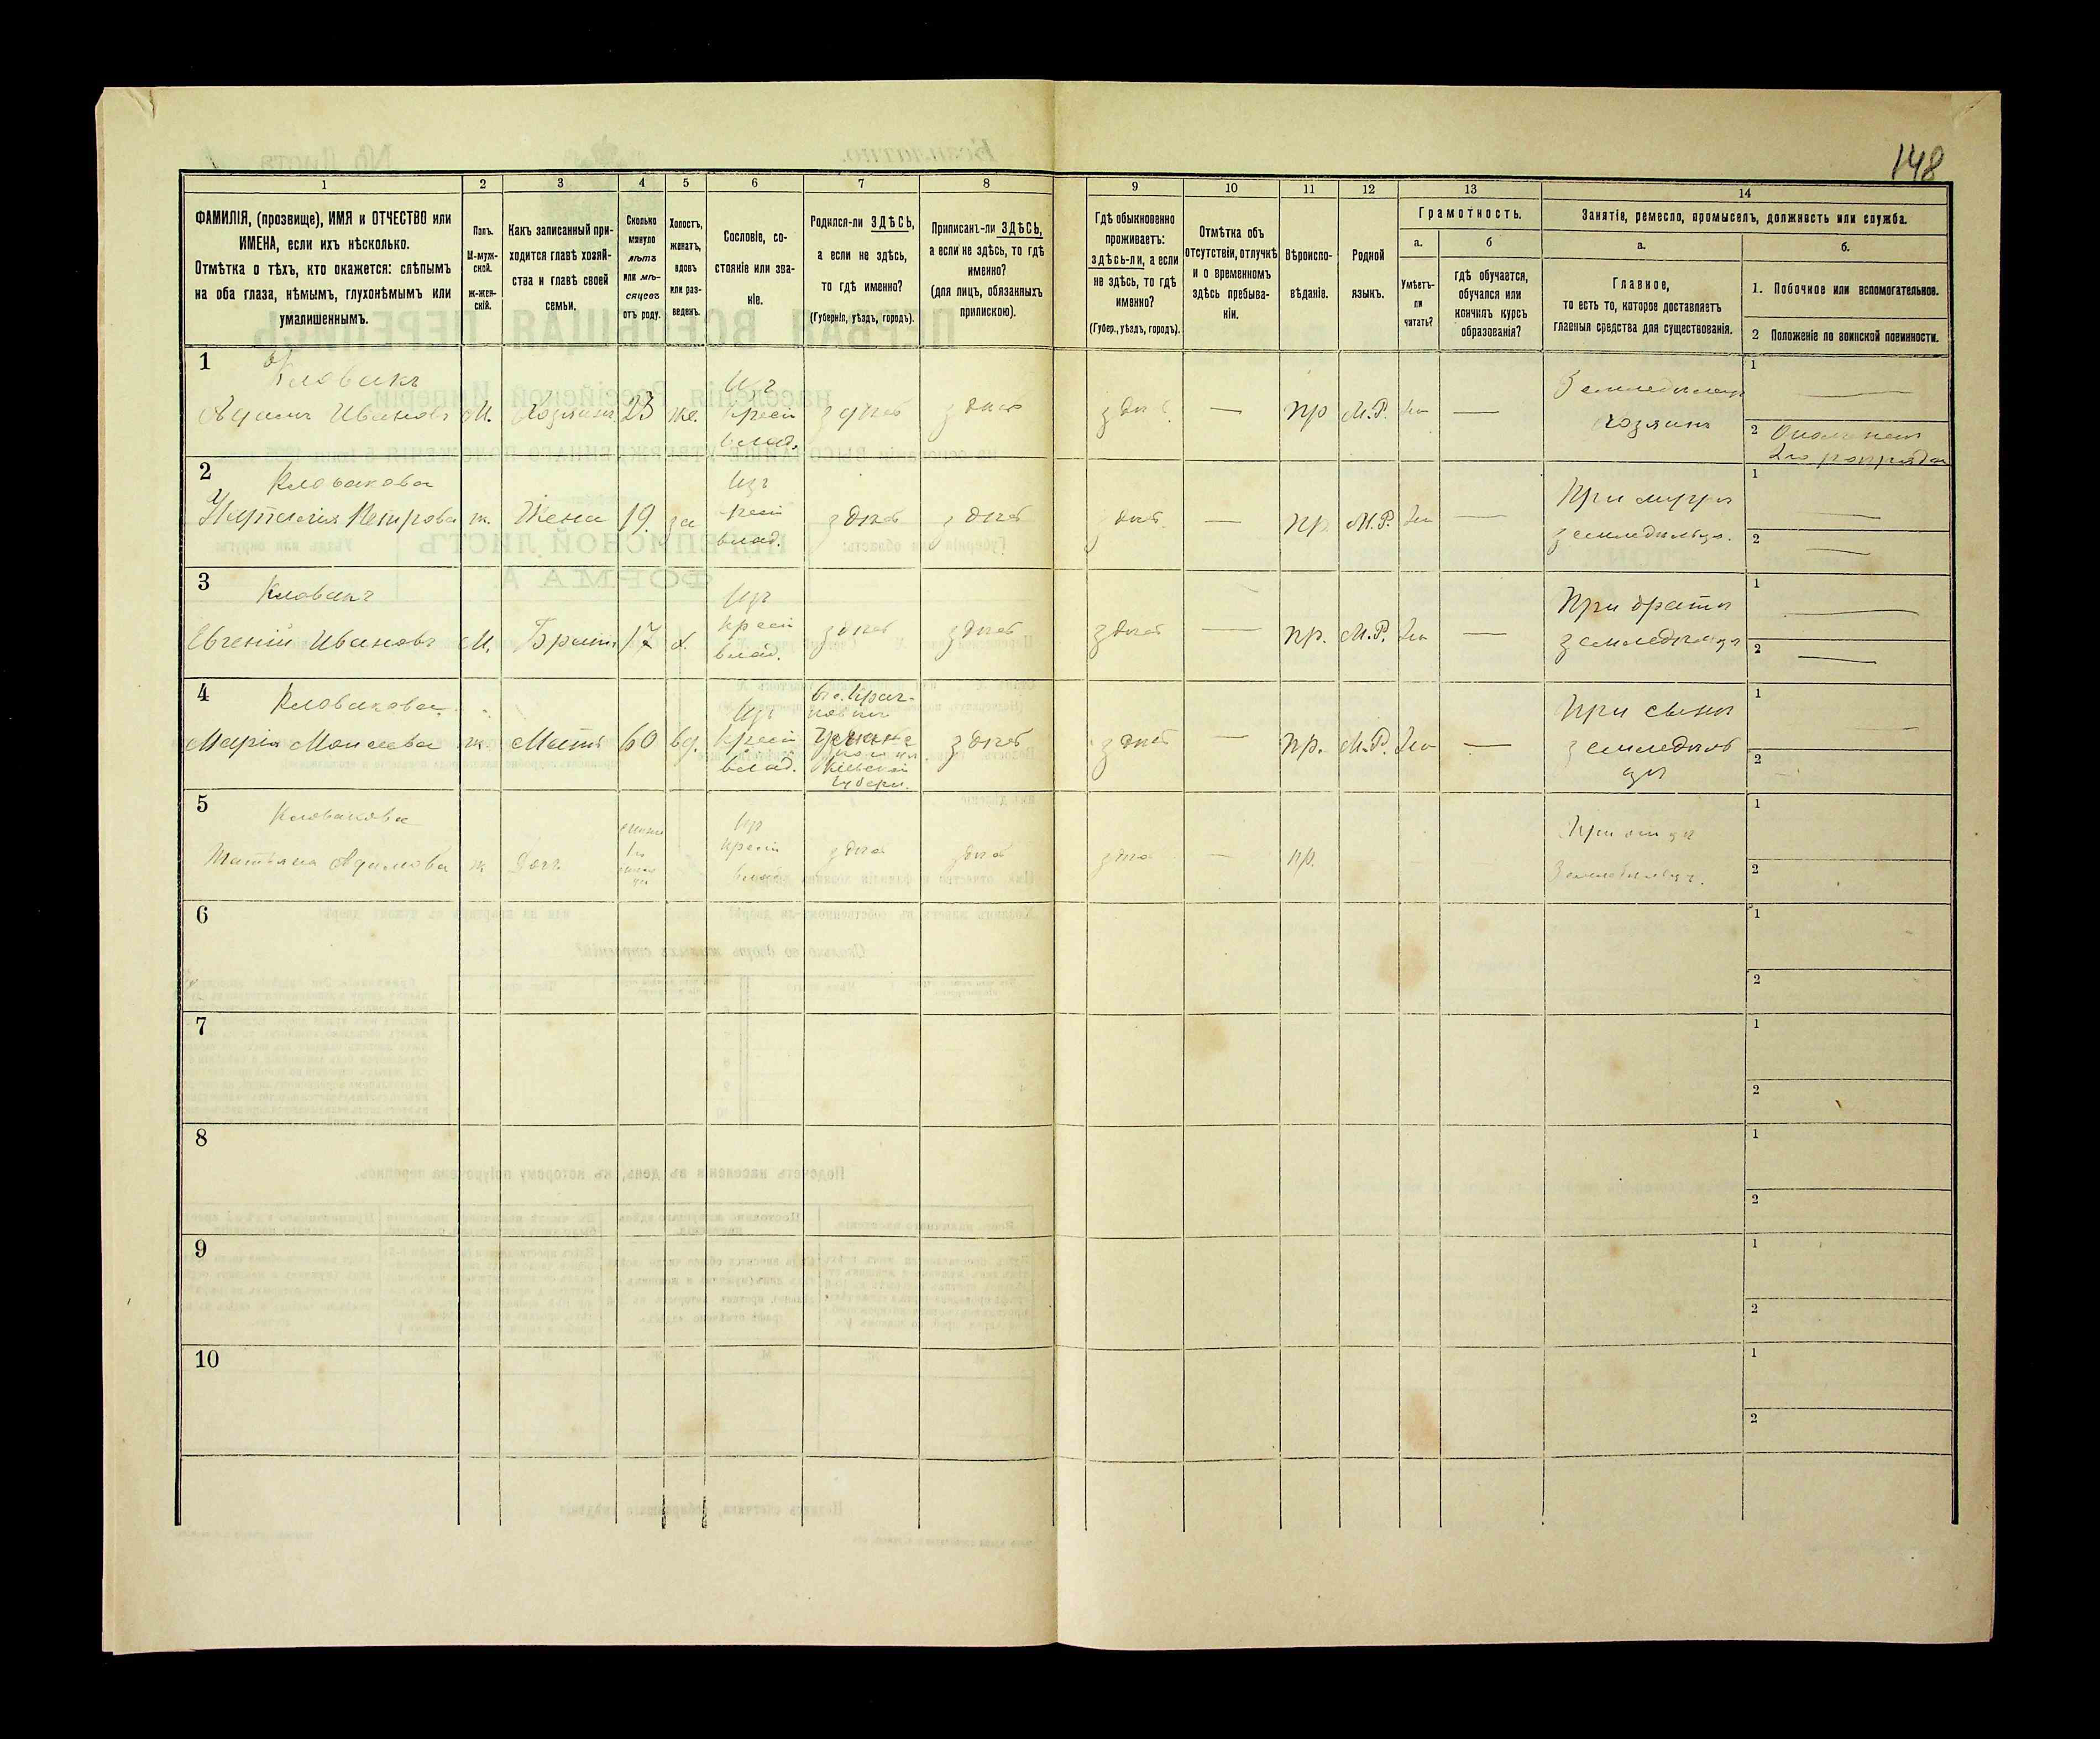 148
1 2 3 4 5 6 7 8 9 10 11 12 13 14
ФАМИЛІЯ, (прозвище), ИМЯ и ОТЧЕСТВО или
ИМЕНА, если ихъ нѣсколько.
Отмѣтка о тѣхъ, кто окажется: слѣпымъ
на оба глаза, нѣмымъ, глухонѣмымъ или
умалишеннымъ.
Полъ.
М-муж-
ской.
ж-жен-
скій.
Какъ записанный при-
ходится главѣ хозяй-
ства и главѣ своей
семьи.
Сколько
минуло
лѣтъ
или мѣ-
сяцевъ
отъ роду.
Холостъ,
женатъ,
вдовъ
или раз-
веденъ.
Сословіе, со-
стояніе или зва-
ніе.
Родился-ли ЗДѢСЬ,
а если не здѣсь,
то гдѣ именно?
(Губернія, уѣздъ, городъ).
Приписанъ-ли ЗДѢСЬ,
а если не здѣсь, то гдѣ
именно?
(для лицъ, обязанныхъ
припискою).
Гдѣ обыкновенно
проживаетъ:
здѣсь-ли, а если
не здѣсь, то гдѣ
именно?
(Губер., уѣздъ, городъ).
Отмѣтка объ
отсутствіи, отлучкѣ
и о временномъ
здѣсь пребыва-
ніи.
Вѣроиспо-
вѣданіе.
Родной
языкъ.
Грамотность.
а.
Умѣетъ-
ли
читать?
б
гдѣ обучается,
обучался или
кончилъ курсъ
образованія?
Занятіе, ремесло, промыселъ, должность или служба.
а.
Главное,
то есть то, которое доставляетъ
главныя средства для существованія.
б.
1. Побочное или вспомогательное.
2 Положеніе по воинской повинности.
1 Кловакъ Изъ 1
Адамъ Ивановъ М. Хозяинъ 23 же. крест здѣсь здѣсь здѣсь — пр М.Р. — хозяинъ —
влад. 2
2 Кловакова Изъ При мужѣ 1
Петрова ж. Жена 19 за крест здѣсь здѣсь здѣсь — пр. М.Р. — —
влад. земледѣльцѣ. 2 —
3 Кловакъ Изъ При братѣ 1
Евгеній Ивановъ М. Братъ 17 х. крест здѣсь здѣсь здѣсь — пр. М.Р. — —
влад. земледѣльцѣ 2 —
4 Кловакова Изъ При сынѣ 1
Марія Моисеева ж. Мать 60 вд. крест здѣсь здѣсь — пр. М.Р. — —
влад. Кіевской земледѣль 2
губерн. цѣ
5 Кловакова Изъ При отцѣ 1
Татьяна Адамова ж Дочь крест здѣсь здѣсь здѣсь — пр.
влад земледѣльцѣ. 2
6 1
2
7 1
2
8 1
2
9 1
2
10 1
2